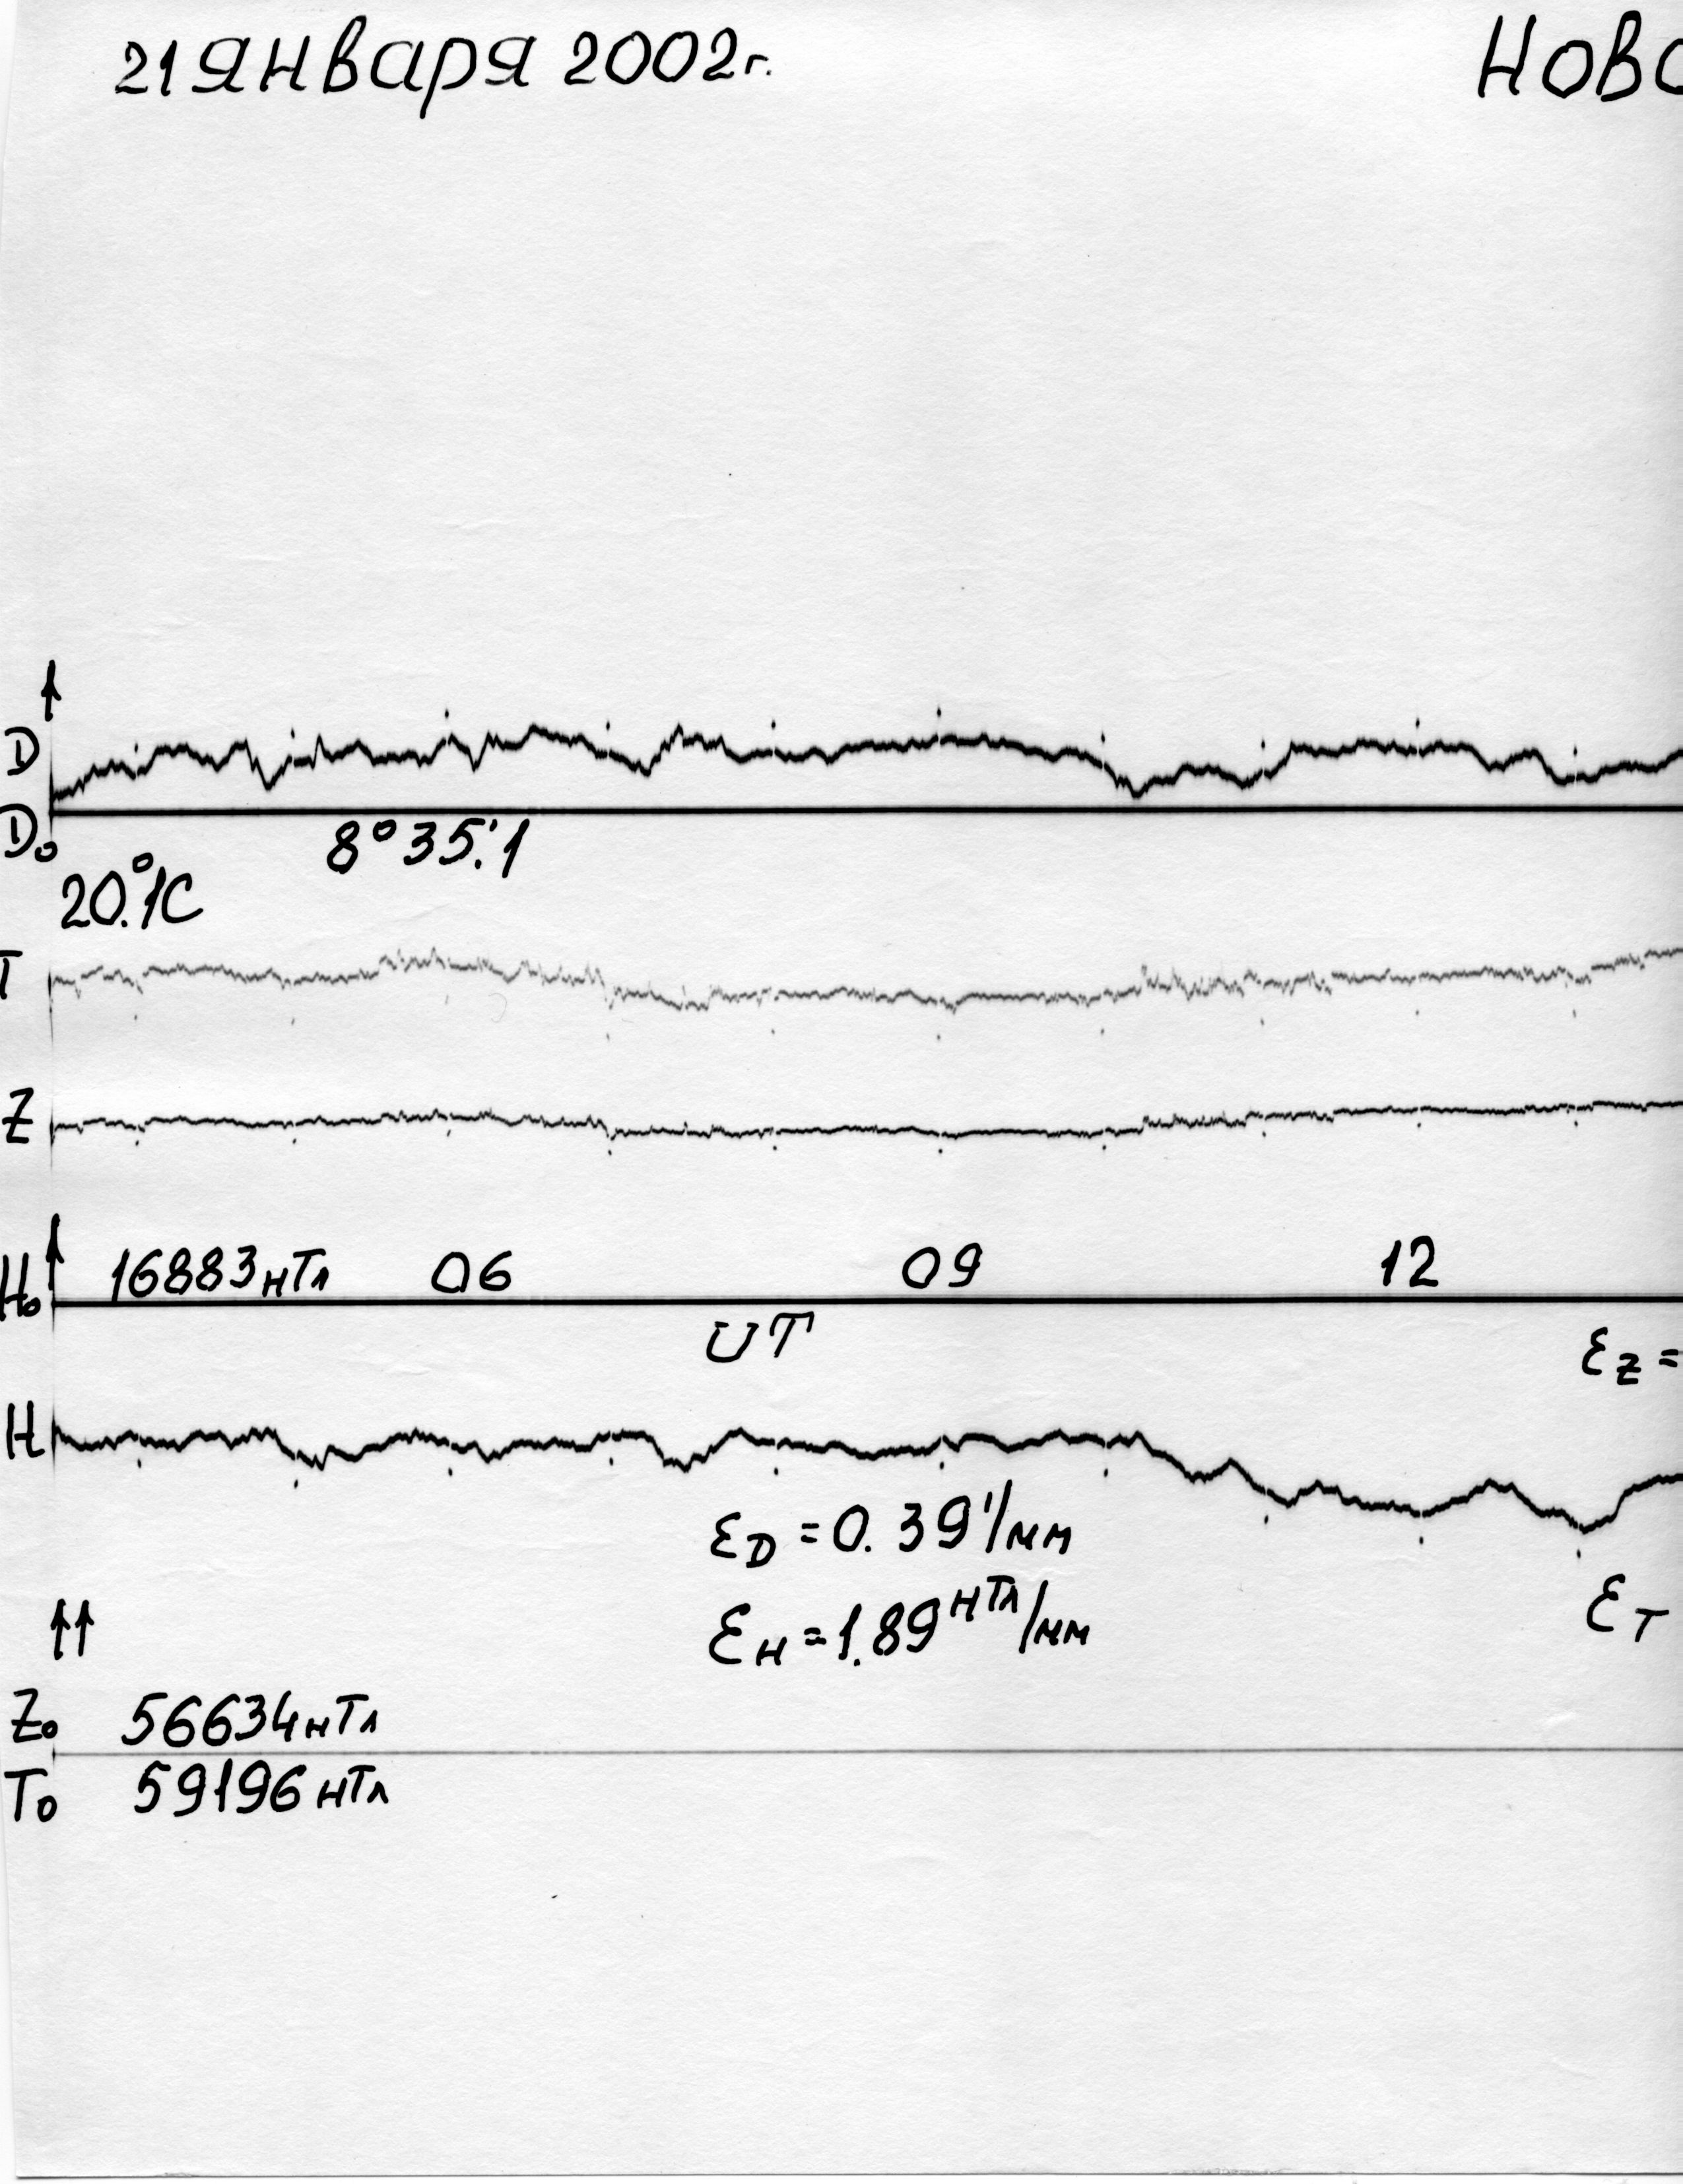 21 января 2002г. Ново
D
D₀ 8°35.'1
20.°1C
T
Z
H₀ 16883нТл 06 09 12
UT
εz =
H
εD = 0.39'/мм
εH = 1.89нТл/мм
εT
Z₀ 56634нТл
T₀ 59196нТл